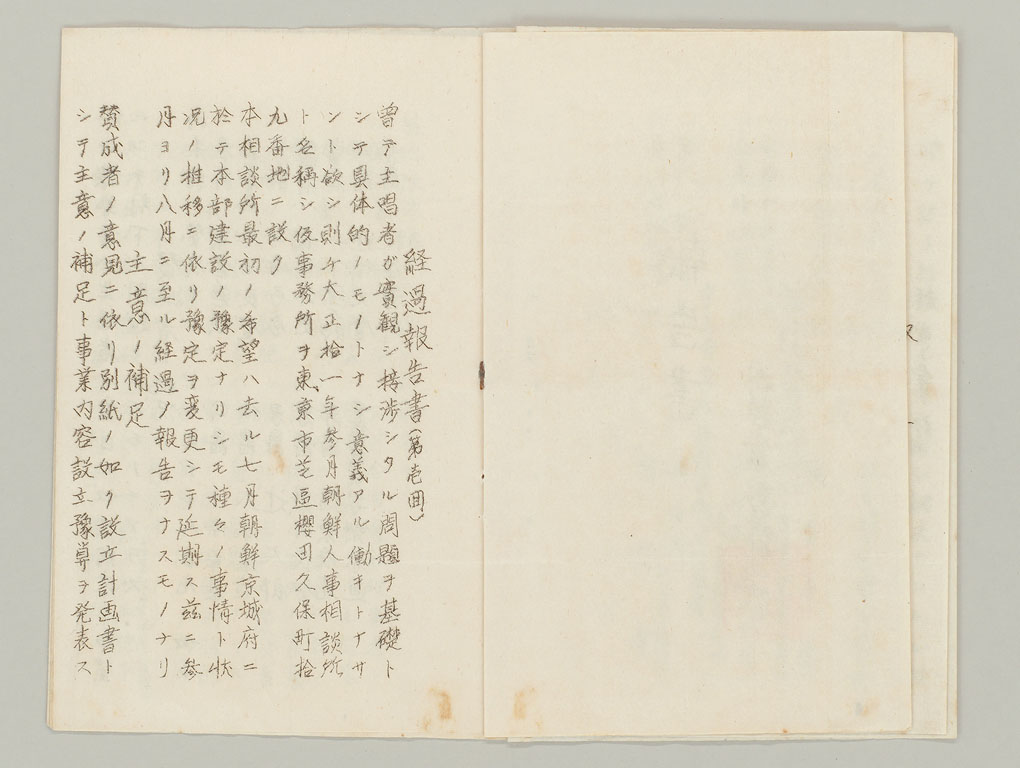 経過報告書(第壱回)
曽テ主唱者ガ實観シ接渉シタル問題ヲ基礎ト
シテ具体的ノモノトナシ意義アル働キトナサ
ント欲シ則チ大正拾一年参月朝鮮人事相談所
ト名称シ仮事務所ヲ東京市芝區櫻田久保町拾
九番地ニ設ク
本相談所最初ノ希望ハ去ル七月朝鮮京城府ニ
於テ本部建設ノ豫定ナリシモ種々ノ事情ト状
況ノ推移ニ依リ豫定ヲ変更シテ延期ス茲ニ参
月ヨリ八月ニ至ル経過ノ報告ヲナスモノナリ
主意ノ補足
賛成者ノ意見ニ依リ別紙ノ如ク設立計画書ト
シテ主意ノ補足ト事業内容設立豫算ヲ発表ス